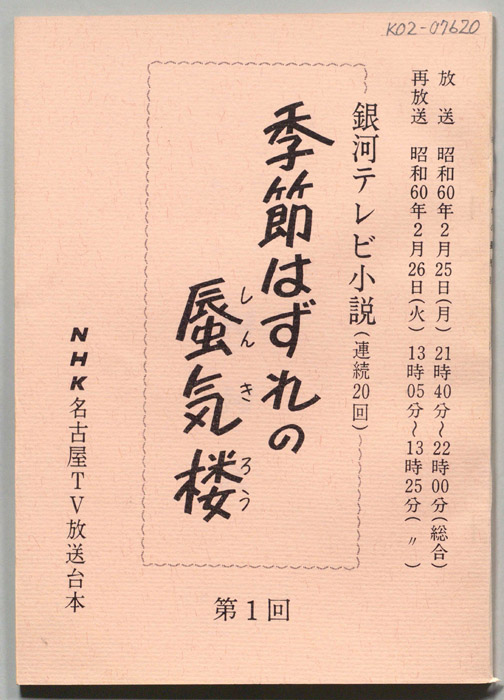 K02-07620
放　送　昭和60年2月25日(月) 21時40分～22時00分(総合)
再放送　昭和60年2月26日(火) 13時05分～13時25分( 〃 )
銀河テレビ小説(連続20回)
季節はずれの
蜃気楼
しんきろう
第1回
NHK名古屋TV放送台本